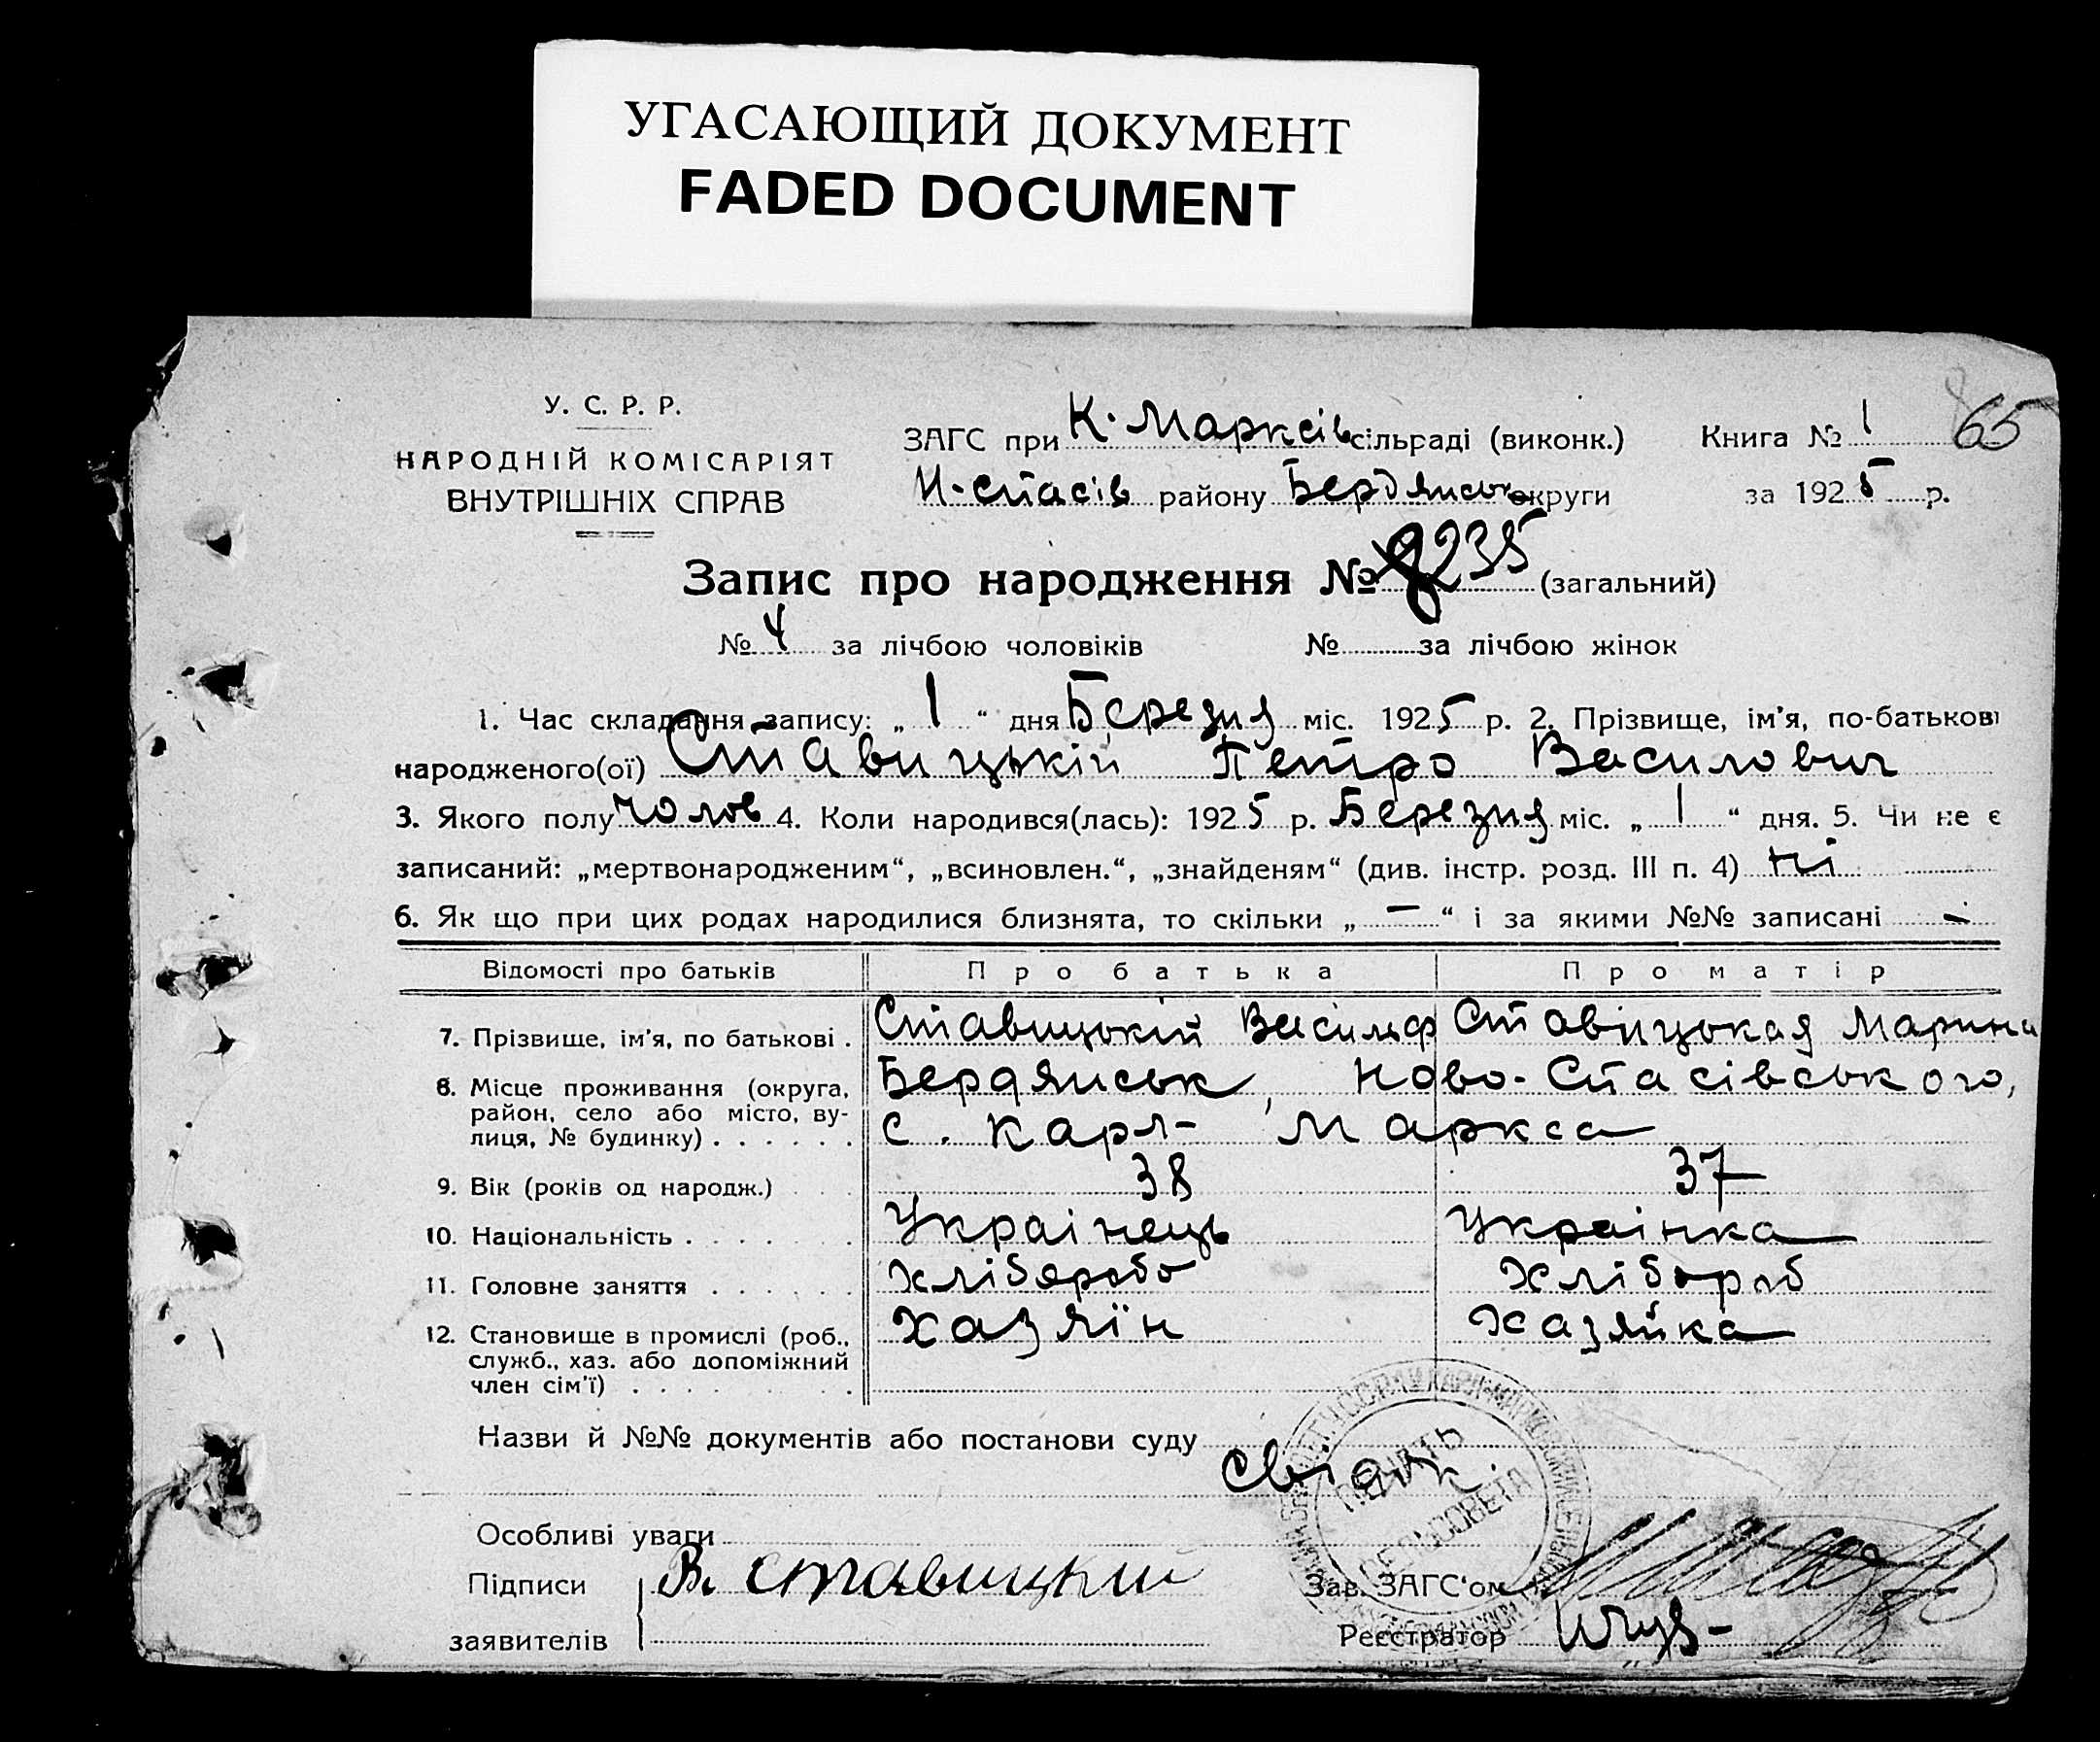 УГАСАЮЩИЙ ДОКУМЕНТ
FADED DOCUMENT
У. С. Р. Р.
НАРОДНІЙ КОМІСАРІЯТ
ВНУТРІШНІХ СПРАВ
ЗАГС при К. Марксів сільраді (виконк.)
Н-Спасів району Бердянськ округи
Книга № 1
65
за 1925 р.
Запис про народження № 235 (загальний)
№ 4 за лічбою чоловіків № за лічбою жінок
1. Час складання запису: „ 1 “ дня Березня міс. 1925 р. 2. Прізвище, ім'я, по-батькові
народженого(ої) Ставицькій Петро Василович
3. Якого полу Чолов 4. Коли народився(лась): 1925 р. Березня міс. „ 1 “ дня. 5. Чи не є
записаний: „мертвонародженим“, „всиновлен.“, „знайденям“ (див. інстр. розд. III п. 4) ні
6. Як що при цих родах народилися близнята, то скільки „ — “ і за якими №№ записані —
Відомості про батьків Про батька Про матір
7. Прізвище, ім'я, по батькові . Ставицькій Ставіцокая Марина
8. Місце проживання (округа, Бердянськ, Ново-Спасівського,
район, село або місто, ву-
лиця, № будинку) . . . . . . с. Карл- Маркса
9. Вік (років од народж.) . . . 38 37
10. Національність . . . . . . . Украінець Украінка
11. Головне заняття . . . . . . Хліборобо Хлібороб
12. Становище в промислі (роб., Хазяїн Хазяйка
служб., хаз. або допоміжний
член сім'ї) . . . . . . . . .
Назви й №№ документів або постанови суду
Особливі уваги
Підписи В. Ставицкий
заявителів
Зав. ЗАГС'ом
Реєстратор
ПЕЧАТЬ
СЕЛЬСОВЕТА